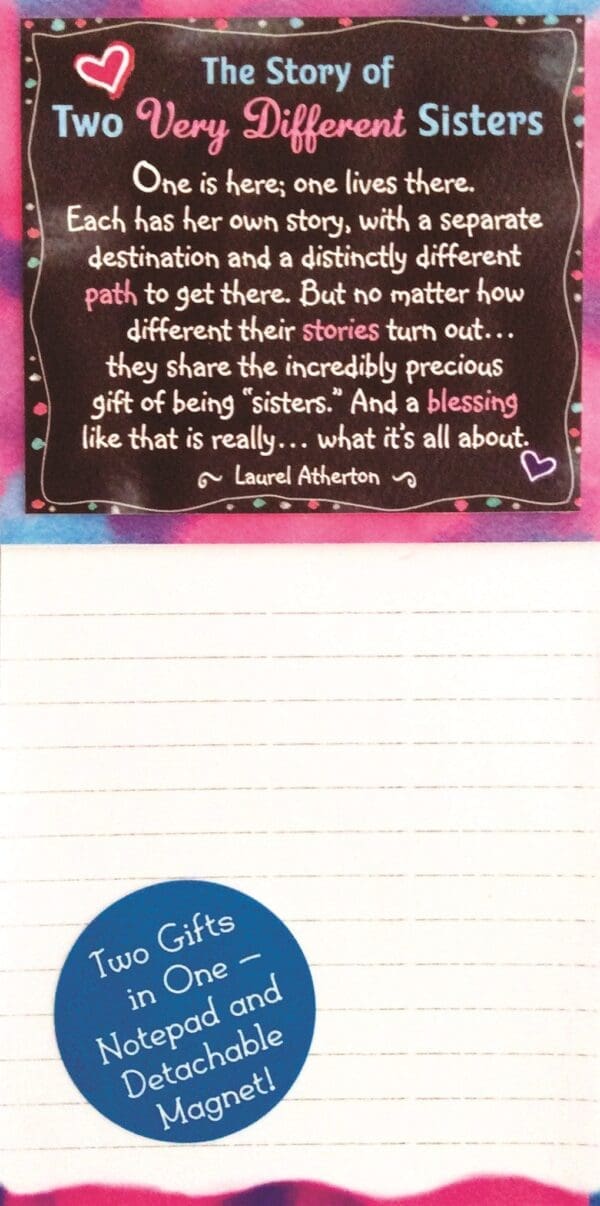 The Story of
Two Very Different Sisters
One is here; one lives there.
Each has her own story, with a separate
destination and a distinctly different
path to get there. But no matter how
different their stories turn out...
they share the incredibly precious
gift of being "sisters." And a blessing
like that is really... what it's all about.
~ Laurel Atherton ~
Two Gifts
in One —
Notepad and
Detachable
Magnet!